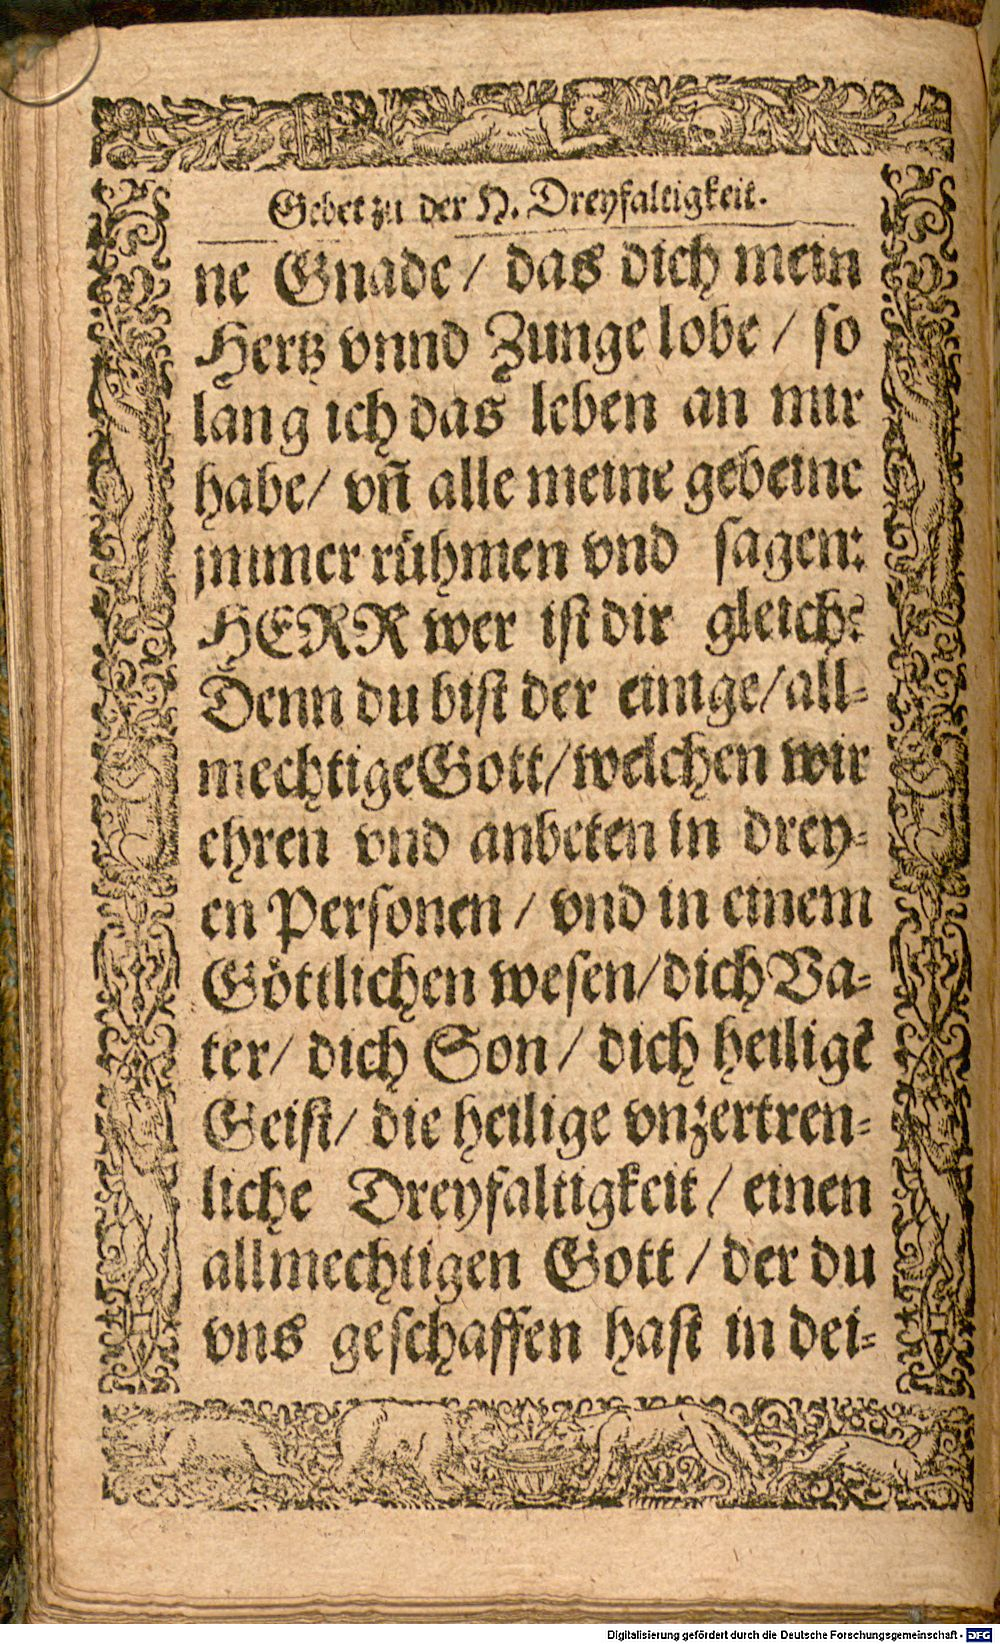 Gebet zu der H. Dreyfaltigkeit.
ne Gnade / das dich mein
Hertz vnnd Zunge lobe / so
lang ich das leben an mir
habe / vñ alle meine gebeine
jmmer rühmen vnd sagen:
HERR wer ist dir gleich?
Denn du bist der einige / all-
mechtige Gott / welchen wir
ehren vnd anbeten in drey-
en Personen / vnd in einem
Göttlichen wesen / dich Va-
ter / dich Son / dich heiligẽ
Geist / die heilige vnzertren-
liche Dreyfaltigkeit / einen
allmechtigen Gott / der du
vns geschaffen hast in dei-
Digitalisierung gefördert durch die Deutsche Forschungsgemeinschaft - DFG